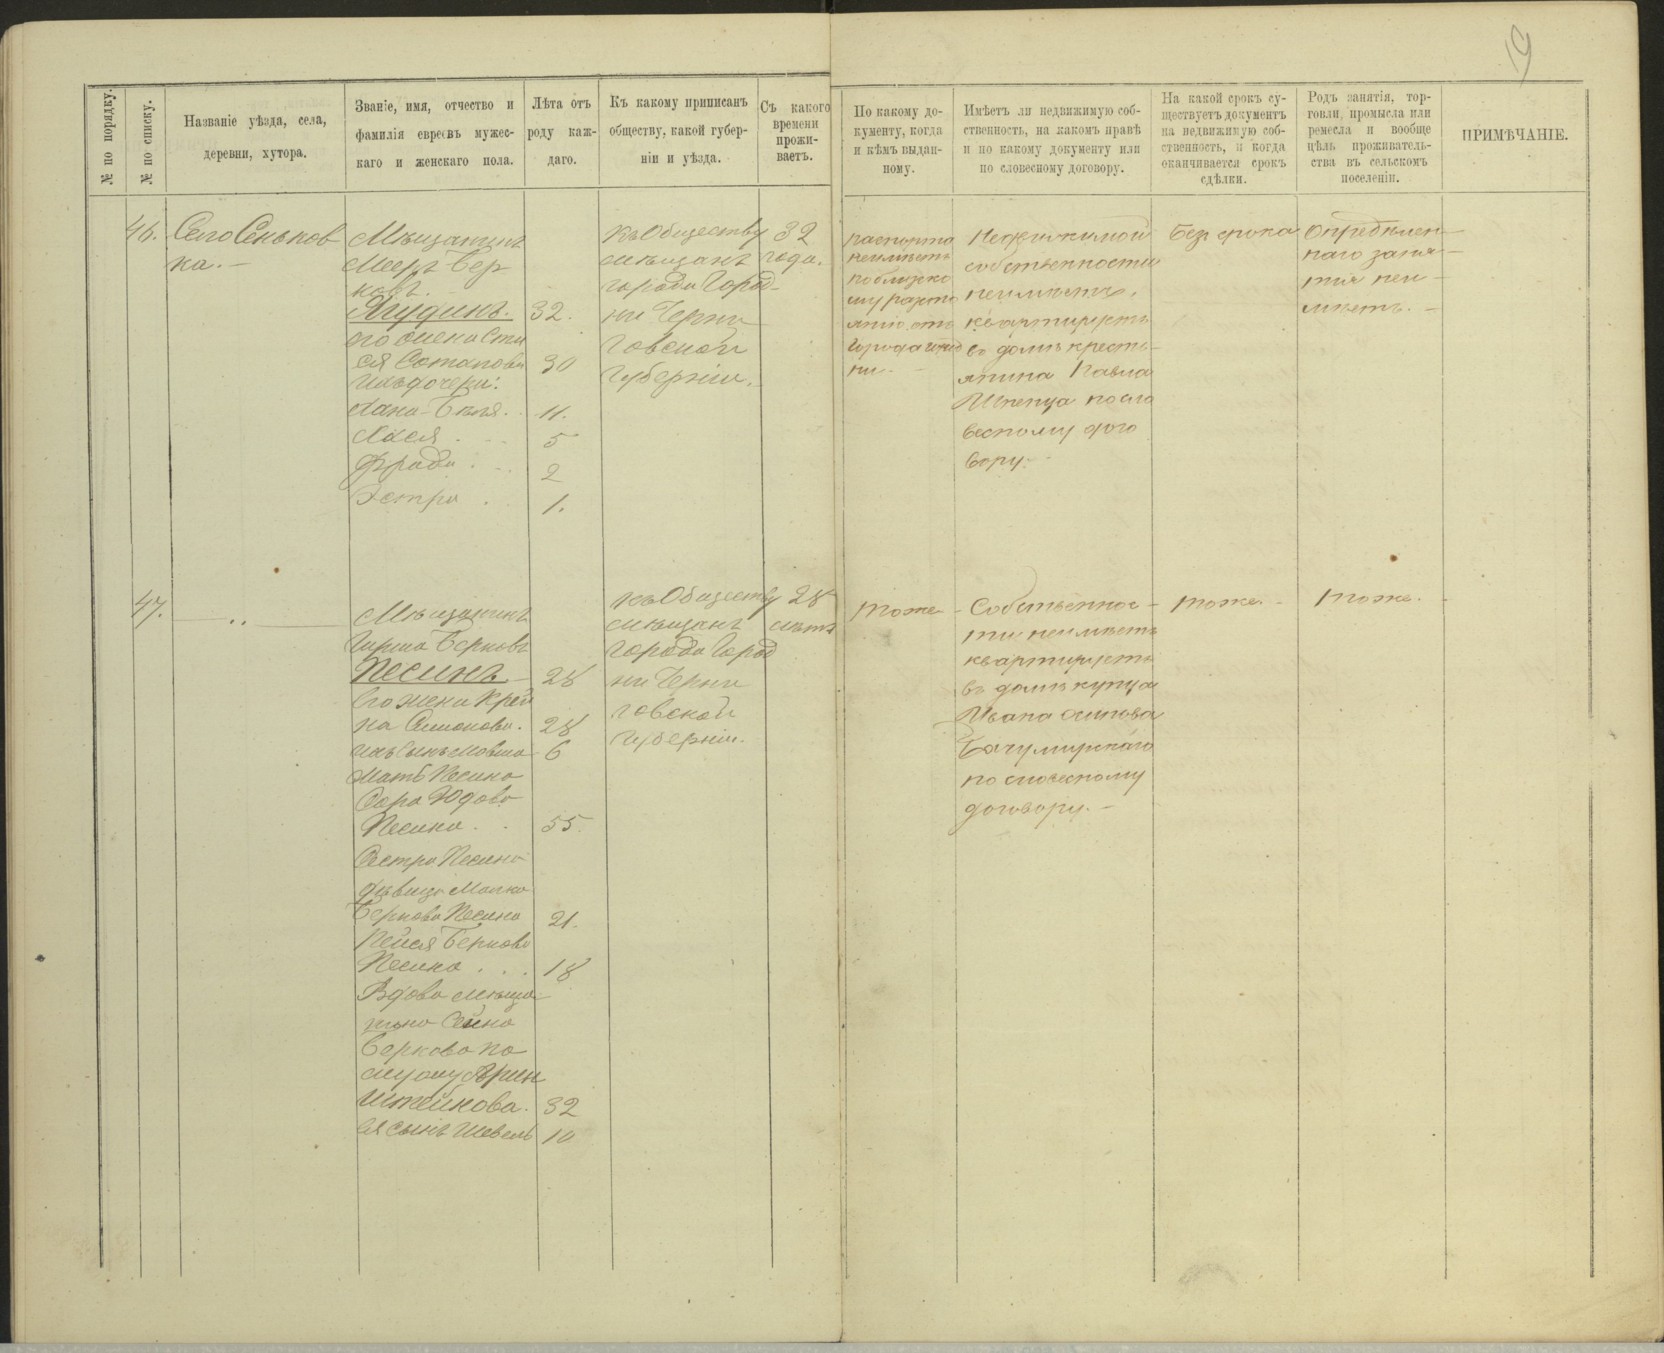 19
№ по порядку.
№ по списку.
Названіе уѣзда, села,
деревни, хутора.
Званіе, имя, отчество и
фамилія евреевъ мужес-
каго и женскаго пола.
Лѣта отъ
роду каж-
даго.
Къ какому приписанъ
обществу, какой губер-
ніи и уѣзда.
Съ какого
времени
прожи-
ваетъ.
По какому до-
кументу, когда
и кѣмъ выдан-
ному.
Имѣетъ ли недвижимую соб-
ственность, на какомъ правѣ
и по какому документу или
по словесному договору.
На какой срокъ су-
ществуетъ документъ
на недвижимую соб-
ственность, и когда
оканчивается срокъ
сдѣлки.
Родъ занятія, тор-
говли, промысла или
ремесла и вообще
цѣль проживатель-
ства въ сельскомъ
поселеніи.
ПРИМѢЧАНІЕ.
46.
Село Сеньков
ка. —
Мѣщанинъ
Мееръ Бер
ковъ.
Ягудинъ. 32.
его жена
30
ихъ дочери:
Хана-Бейля. 11.
Хася 5
Фрада 2
Эстра 1.
къ Обществу
мѣщанъ
города Город-
ни Черни
говской
Губерніи.
32
года.
паспорта
неимѣетъ
по близко
му разсто
янію отъ
города Город
ни. —
Недвижимой
собственности
неимѣетъ,
квартируетъ
въ домѣ кресть-
янина Павла
Шкепца по сло
весному дого
вору. -
Без срока
Опредѣлен-
наго заня-
тия неи-
мѣетъ. -
47.
— " —
Мѣщанинъ
Гирша Берковъ
Песинъ — 28
Его жена Крей
на 28
ихъ сынъ Мовша 6
Мать Песина
Сора Юдова
Песина . . 55.
Сестра Песина
дѣвица Малка
Беркова Песина 21.
Пейся Беркова
Песина . . . 18
Вдова мѣща
нина Сейна
Беркова по
мужу Арин
штейнова. 32
ея сынъ Шевель 10
къ Обществу
мѣщанъ
города Город
ни Черни
говской
Губерніи.
28
лѣтъ
тоже
Собственнос-
ти неимѣетъ
квартируетъ
въ домѣ купца
Ивана Осипова
по словесному
договору. —
тоже. -
тоже. -